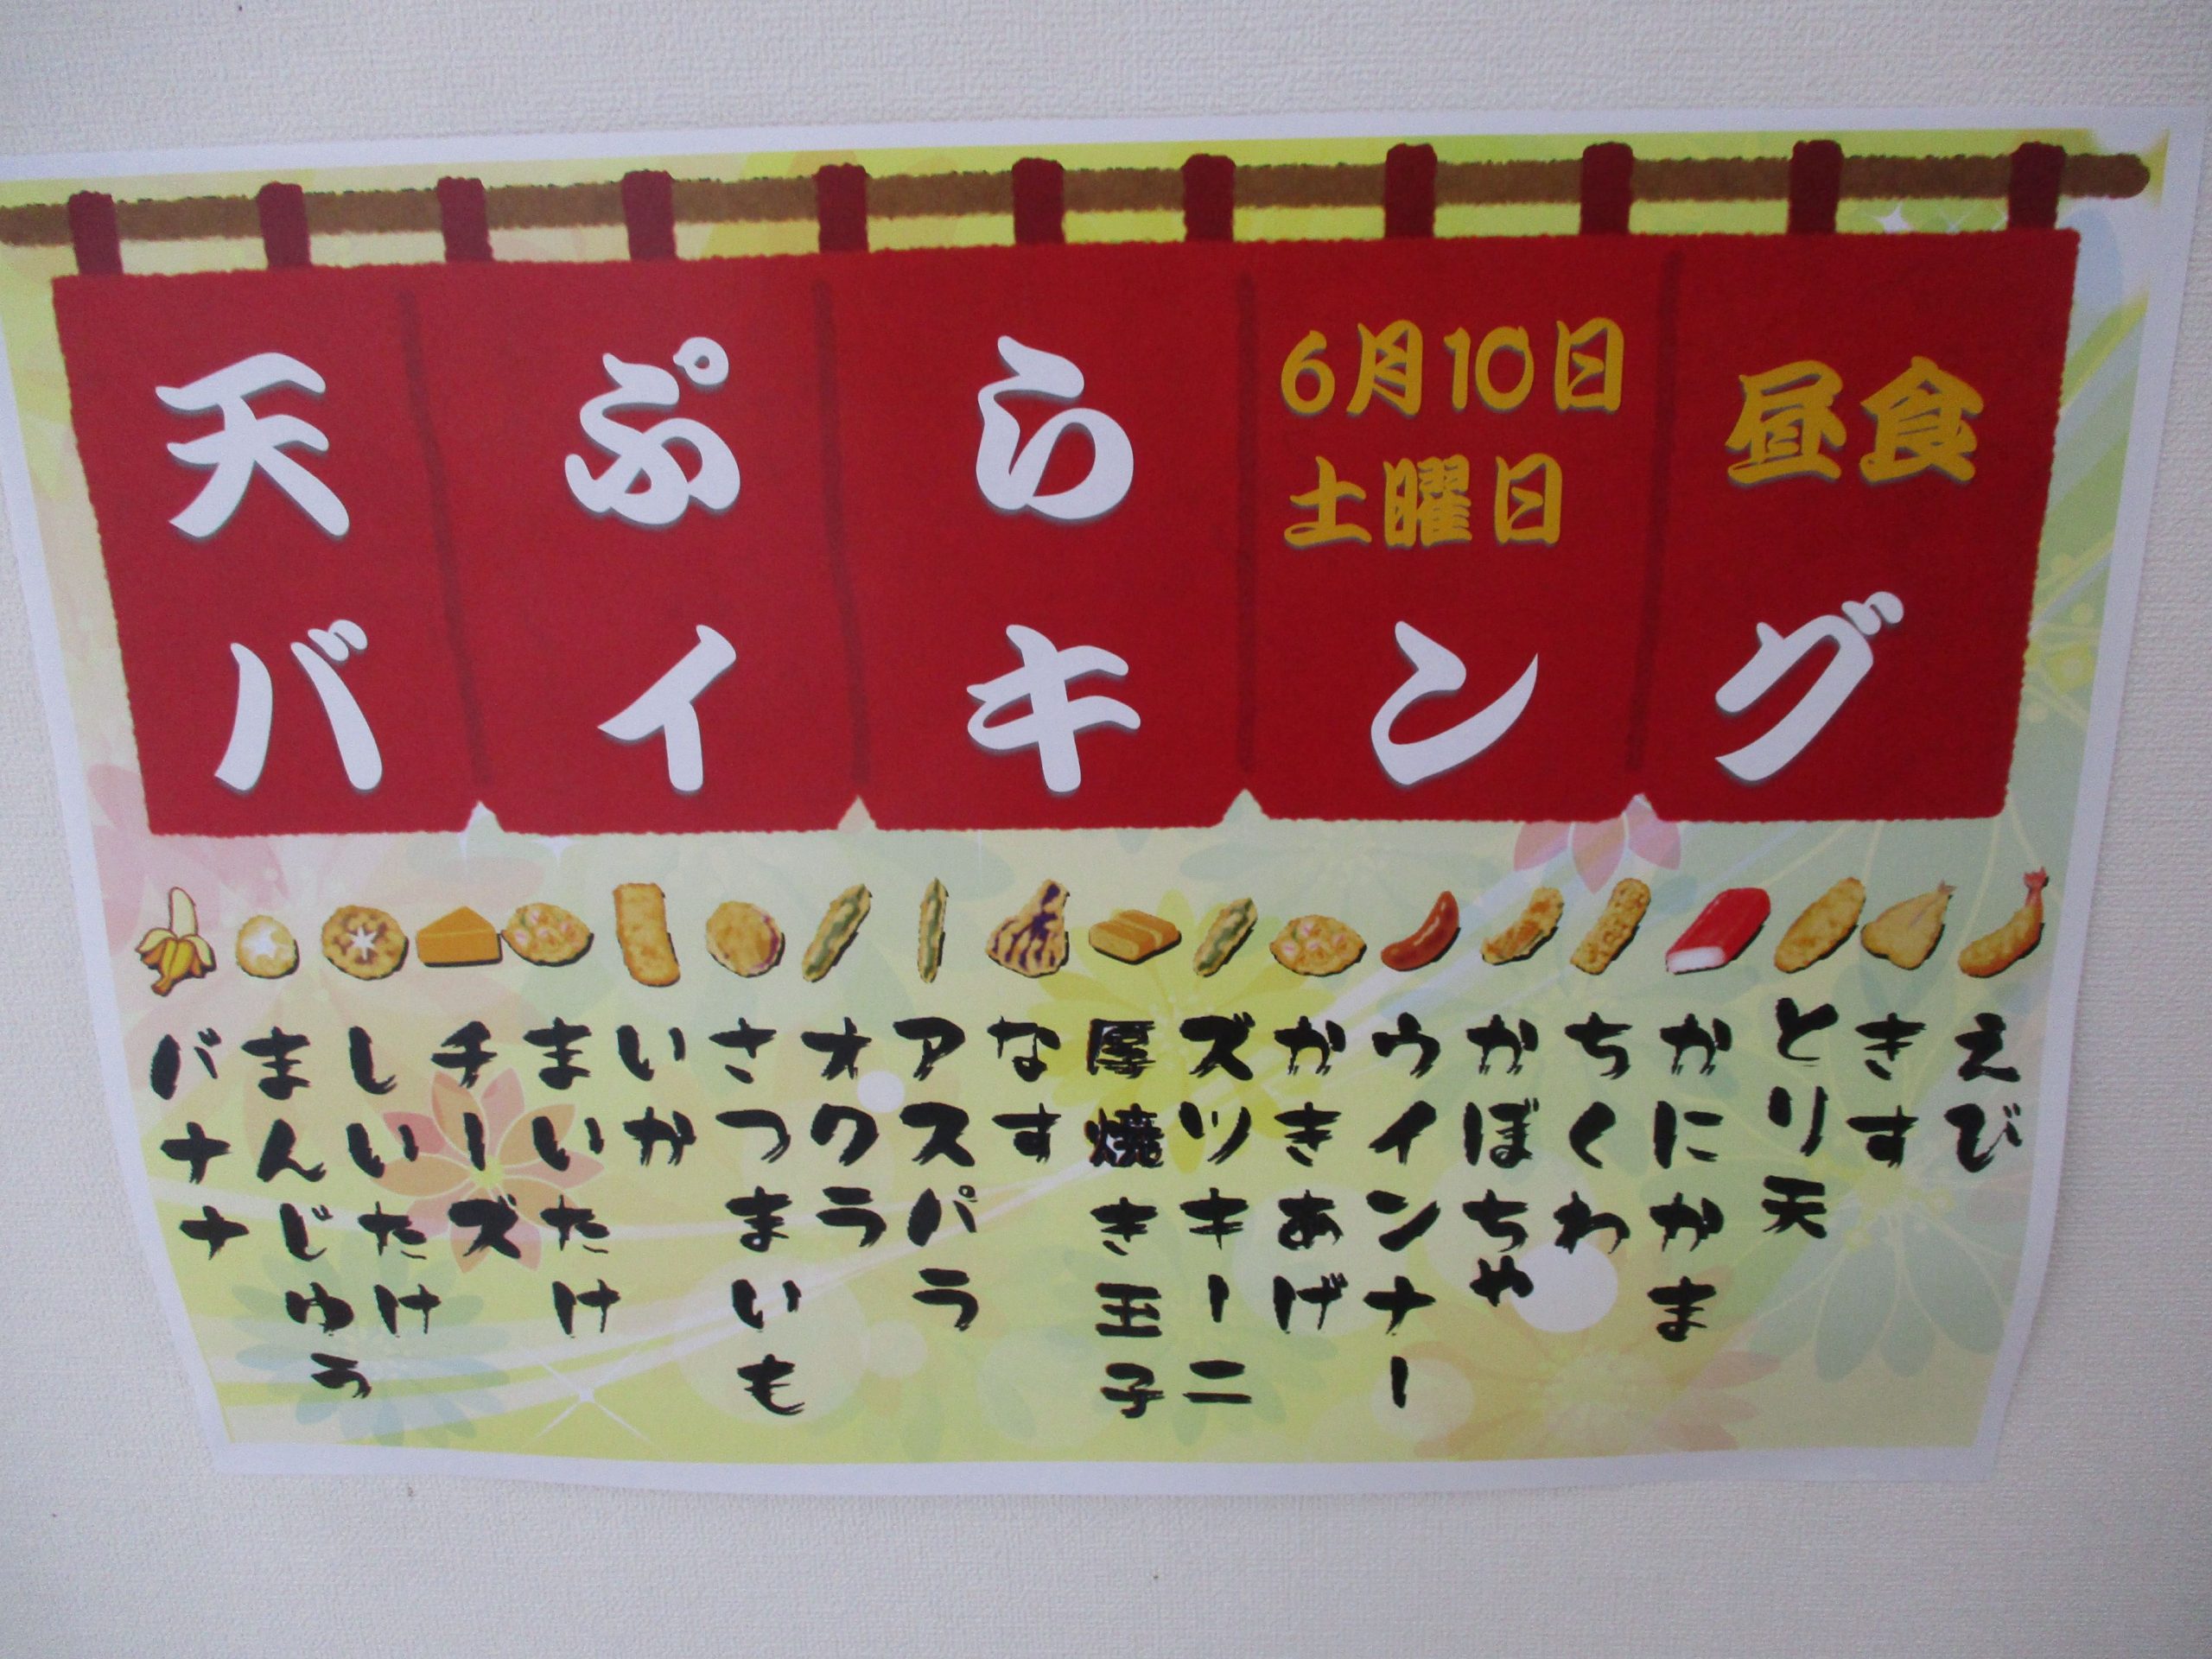 天ぷら
6月10日
土曜日
昼食
バイキング
えび
きす
とり天
かにかま
ちくわ
かぼちゃ
ウインナー
かきあげ
ズッキーニ
厚焼き玉子
なす
アスパラ
オクラ
さつまいも
いか
まいたけ
チーズ
しいたけ
まんじゅう
バナナ